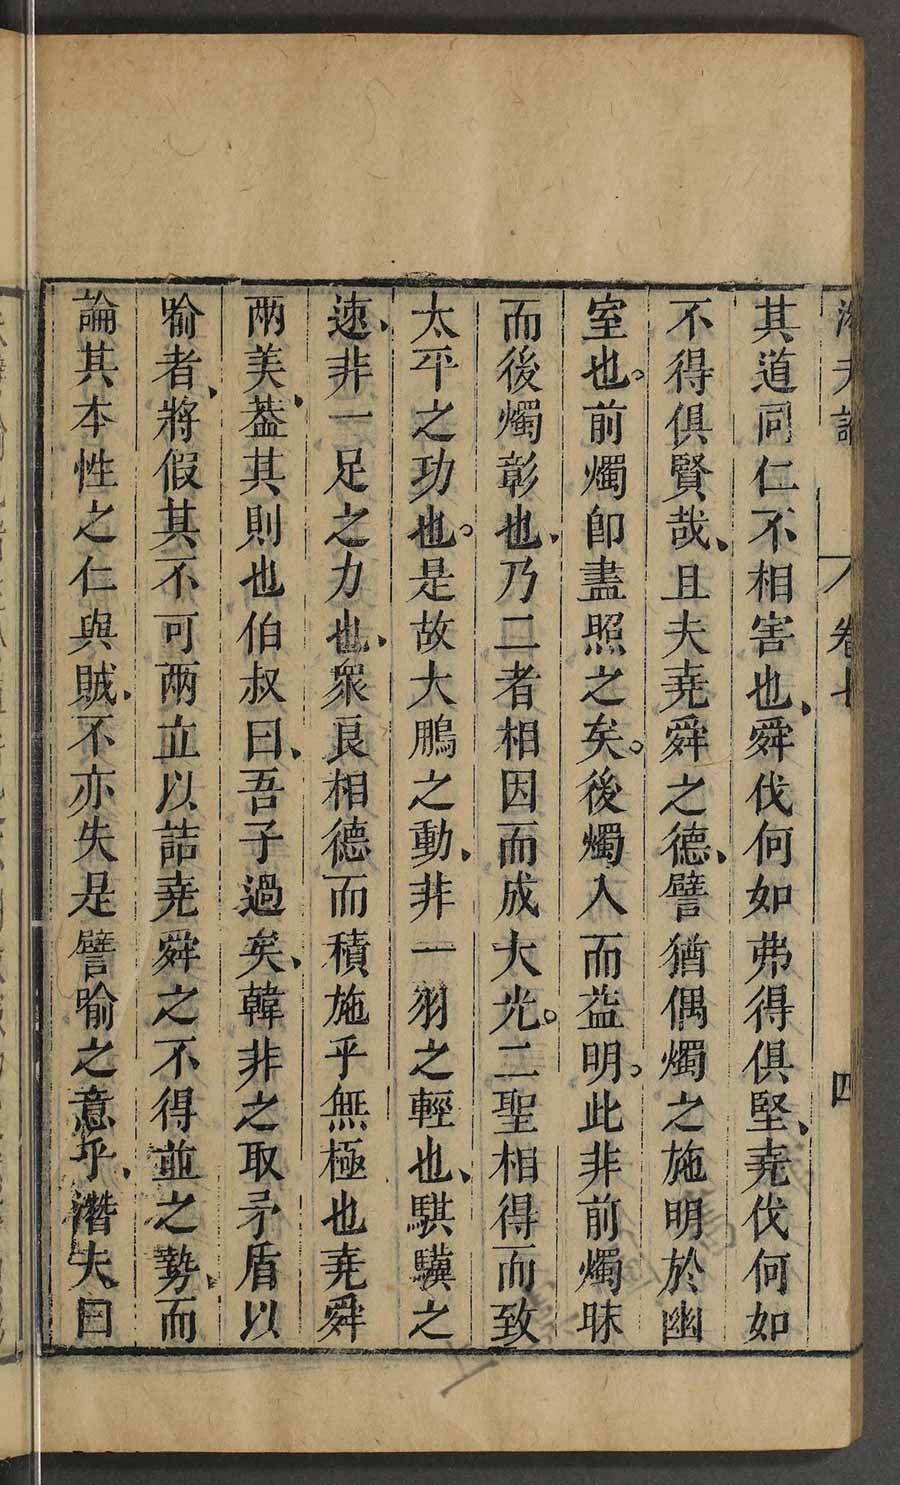 卷七 四
其道同仁不相害也舜伐何如弗得俱堅堯伐何如
不得俱賢哉且夫堯舜之德譬猶偶燭之施明於幽
室也。前燭卽盡照之矣。後燭入而益明。此非前燭昧
而後燭彰也乃二者相因而成大光。二聖相得而致
太平之功也。是故大鵬之動非一羽之輕也騏驥之
速非一足之力也衆良相德而積施乎無極也堯舜
兩美葢其則也伯叔曰吾子過矣韓非之取矛盾以
喻者將假其不可兩立以詰堯舜之不得並之勢而
論其本性之仁與賊不亦失是譬喻之意乎潛夫曰